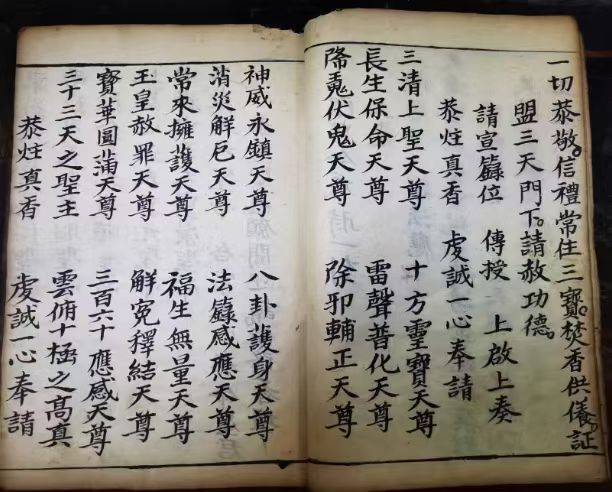 一切恭敬。信禮常住三寶。焚香供儀。証
盟三天門下。請赦功德。
請宣籙位 傳授 上啟上奏
恭炷真香 虔誠一心奉請
三清上聖天尊 十方靈寶天尊
長生保命天尊 雷聲普化天尊
降魔伏鬼天尊 除邪輔正天尊
神威永鎮天尊 八卦護身天尊
消災解厄天尊 法籙感應天尊
常來擁護天尊 福生無量天尊
玉皇赦罪天尊 解冤釋結天尊
寶華圓蒲天尊 三百六十應感天尊
三十三天之聖主 雲俯十極之高真
恭炷真香 虔誠一心奉請